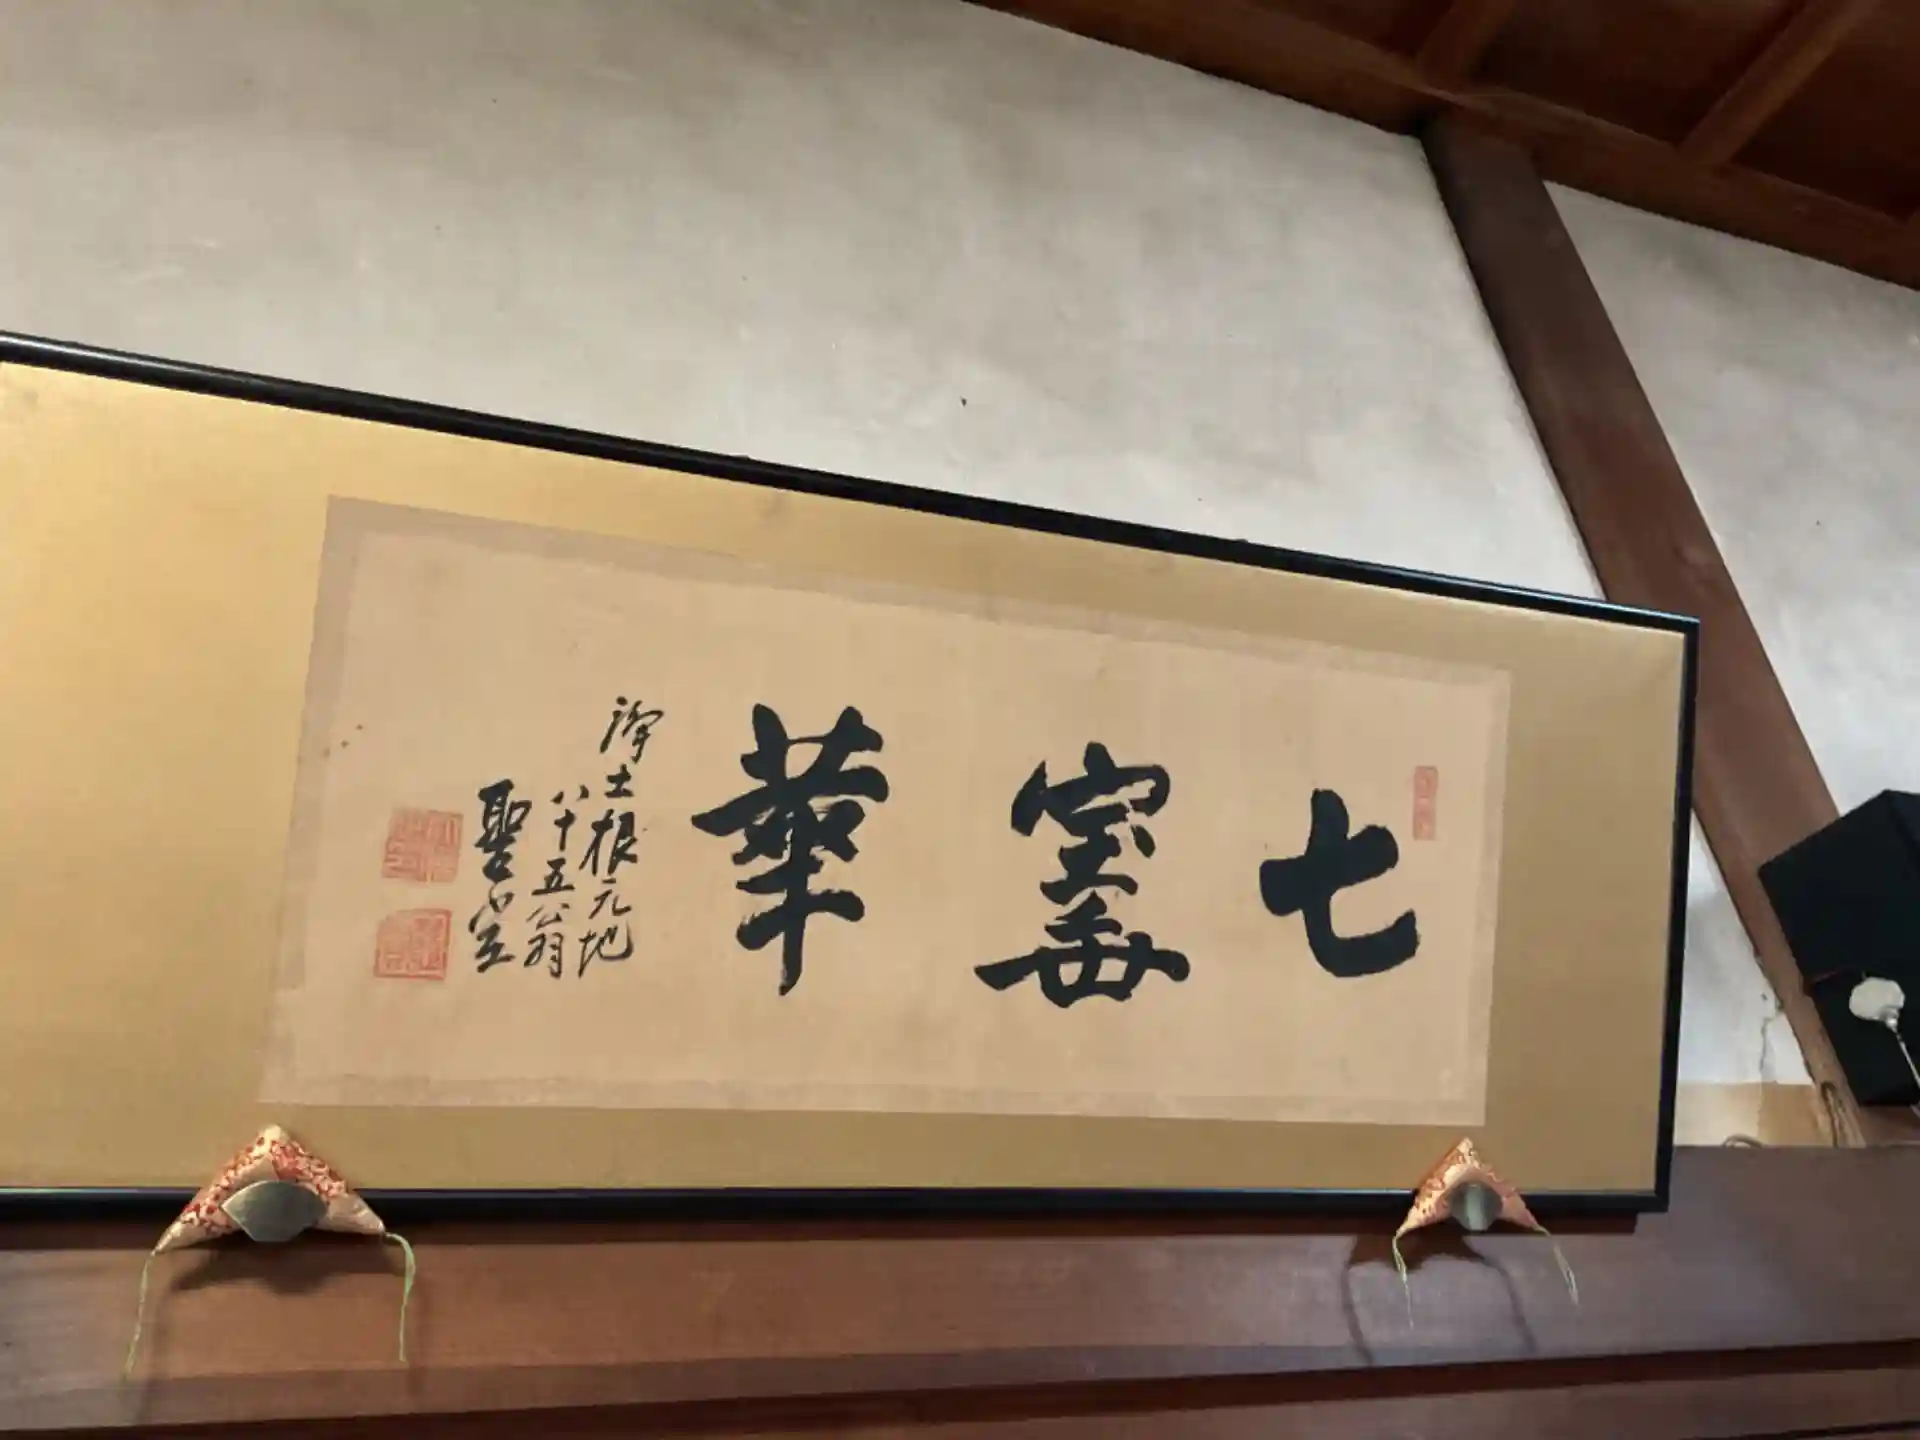 七寳華
淨土根元地
八十五翁
聖空